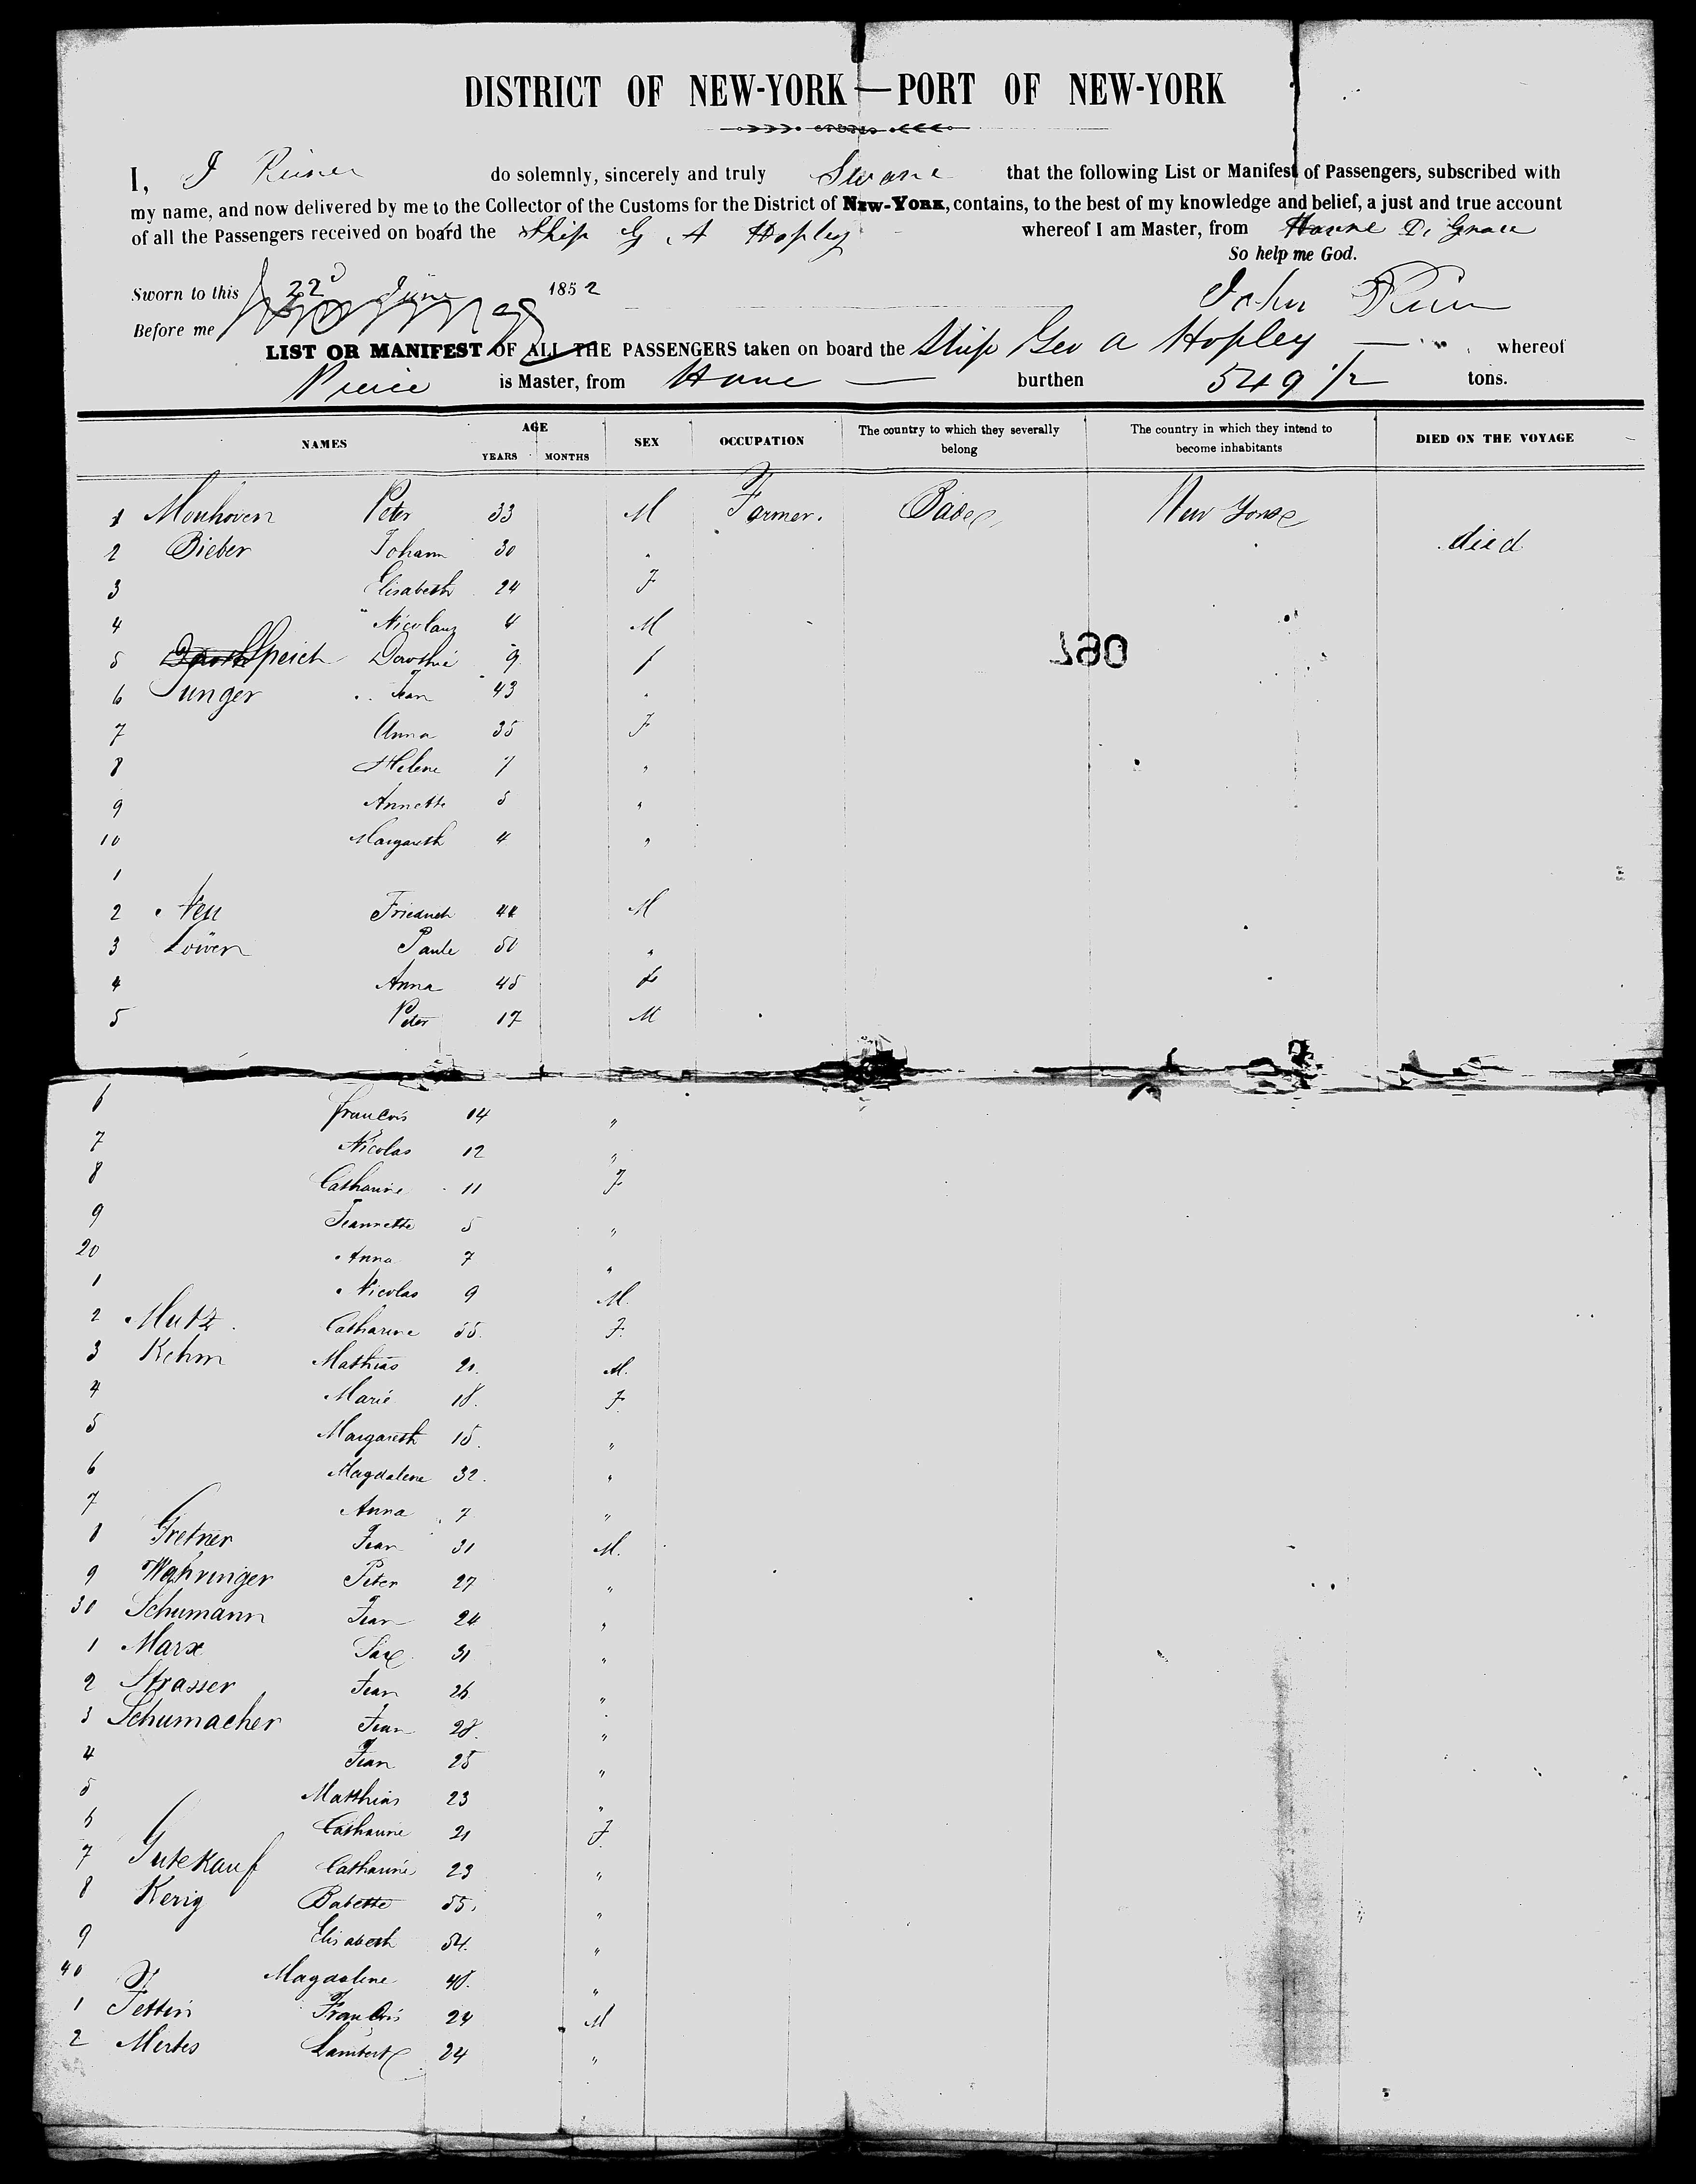 DISTRICT OF NEW-YORK—PORT OF NEW-YORK
I, J do solemnly, sincerely and truly Sware that the following List or Manifest of Passengers, subscribed with
my name, and now delivered by me to the Collector of the Customs for the District of New-York, contains, to the best of my knowledge and belief, a just and true account
of all the Passengers received on board the Ship G A Hopley whereof I am Master, from Havre De Grace
So help me God.
Sworn to this 22d June 1852
John
Before me
LIST OR MANIFEST OF ALL THE PASSENGERS taken on board the Ship Geo A Hopley — whereof
is Master, from Havre — burthen 549 1/2 tons.
NAMES AGE YEARS MONTHS SEX OCCUPATION The country to which they severally belong The country in which they intend to become inhabitants DIED ON THE VOYAGE
1 Monhoven Peter 33 M Farmer. Baden New York
2 Bieber Johann 30 " died
3 Elisabeth 24 F
4 " Nicolaus 4 M
5 Speich Dorothé 9 f
6 Junger Jean 43 "
7 Anna 35 F
8 Helene 7 "
9 Annette 5 "
10 Margareth 4 "
1
2 Neu Friedrich 44 M
3 Löwen Paule 50 "
4 Anna 45 F
5 Peter 17 M
6 Francois 14 "
7 Nicolas 12 "
8 Catharine 11 F
9 Jeannette 5 "
20 Anna 7 "
1 Nicolas 9 M.
2 Mutz Catharine 55. F.
3 Kehm Mathias 21. M.
4 Marie 18. F
5 Margareth 15. "
6 Magdalene 32. "
7 Anna 7 "
8 Gretner Jean 31 M.
9 Wahringer Peter 27 "
30 Schumann Jean 24 "
1 Marx 31 "
2 Strasser Jean 26 "
3 Schumacher Jean 28. "
4 Jean 25 "
5 Matthias 23 "
6 Catharine 21 F.
7 Gutekauf Catharine 23 "
8 Kerig Babette 55. "
9 Elisabeth 54. "
40 Magdalene 48. "
1 Tettin Francois 24 M
2 Mertes Lambert 24 "